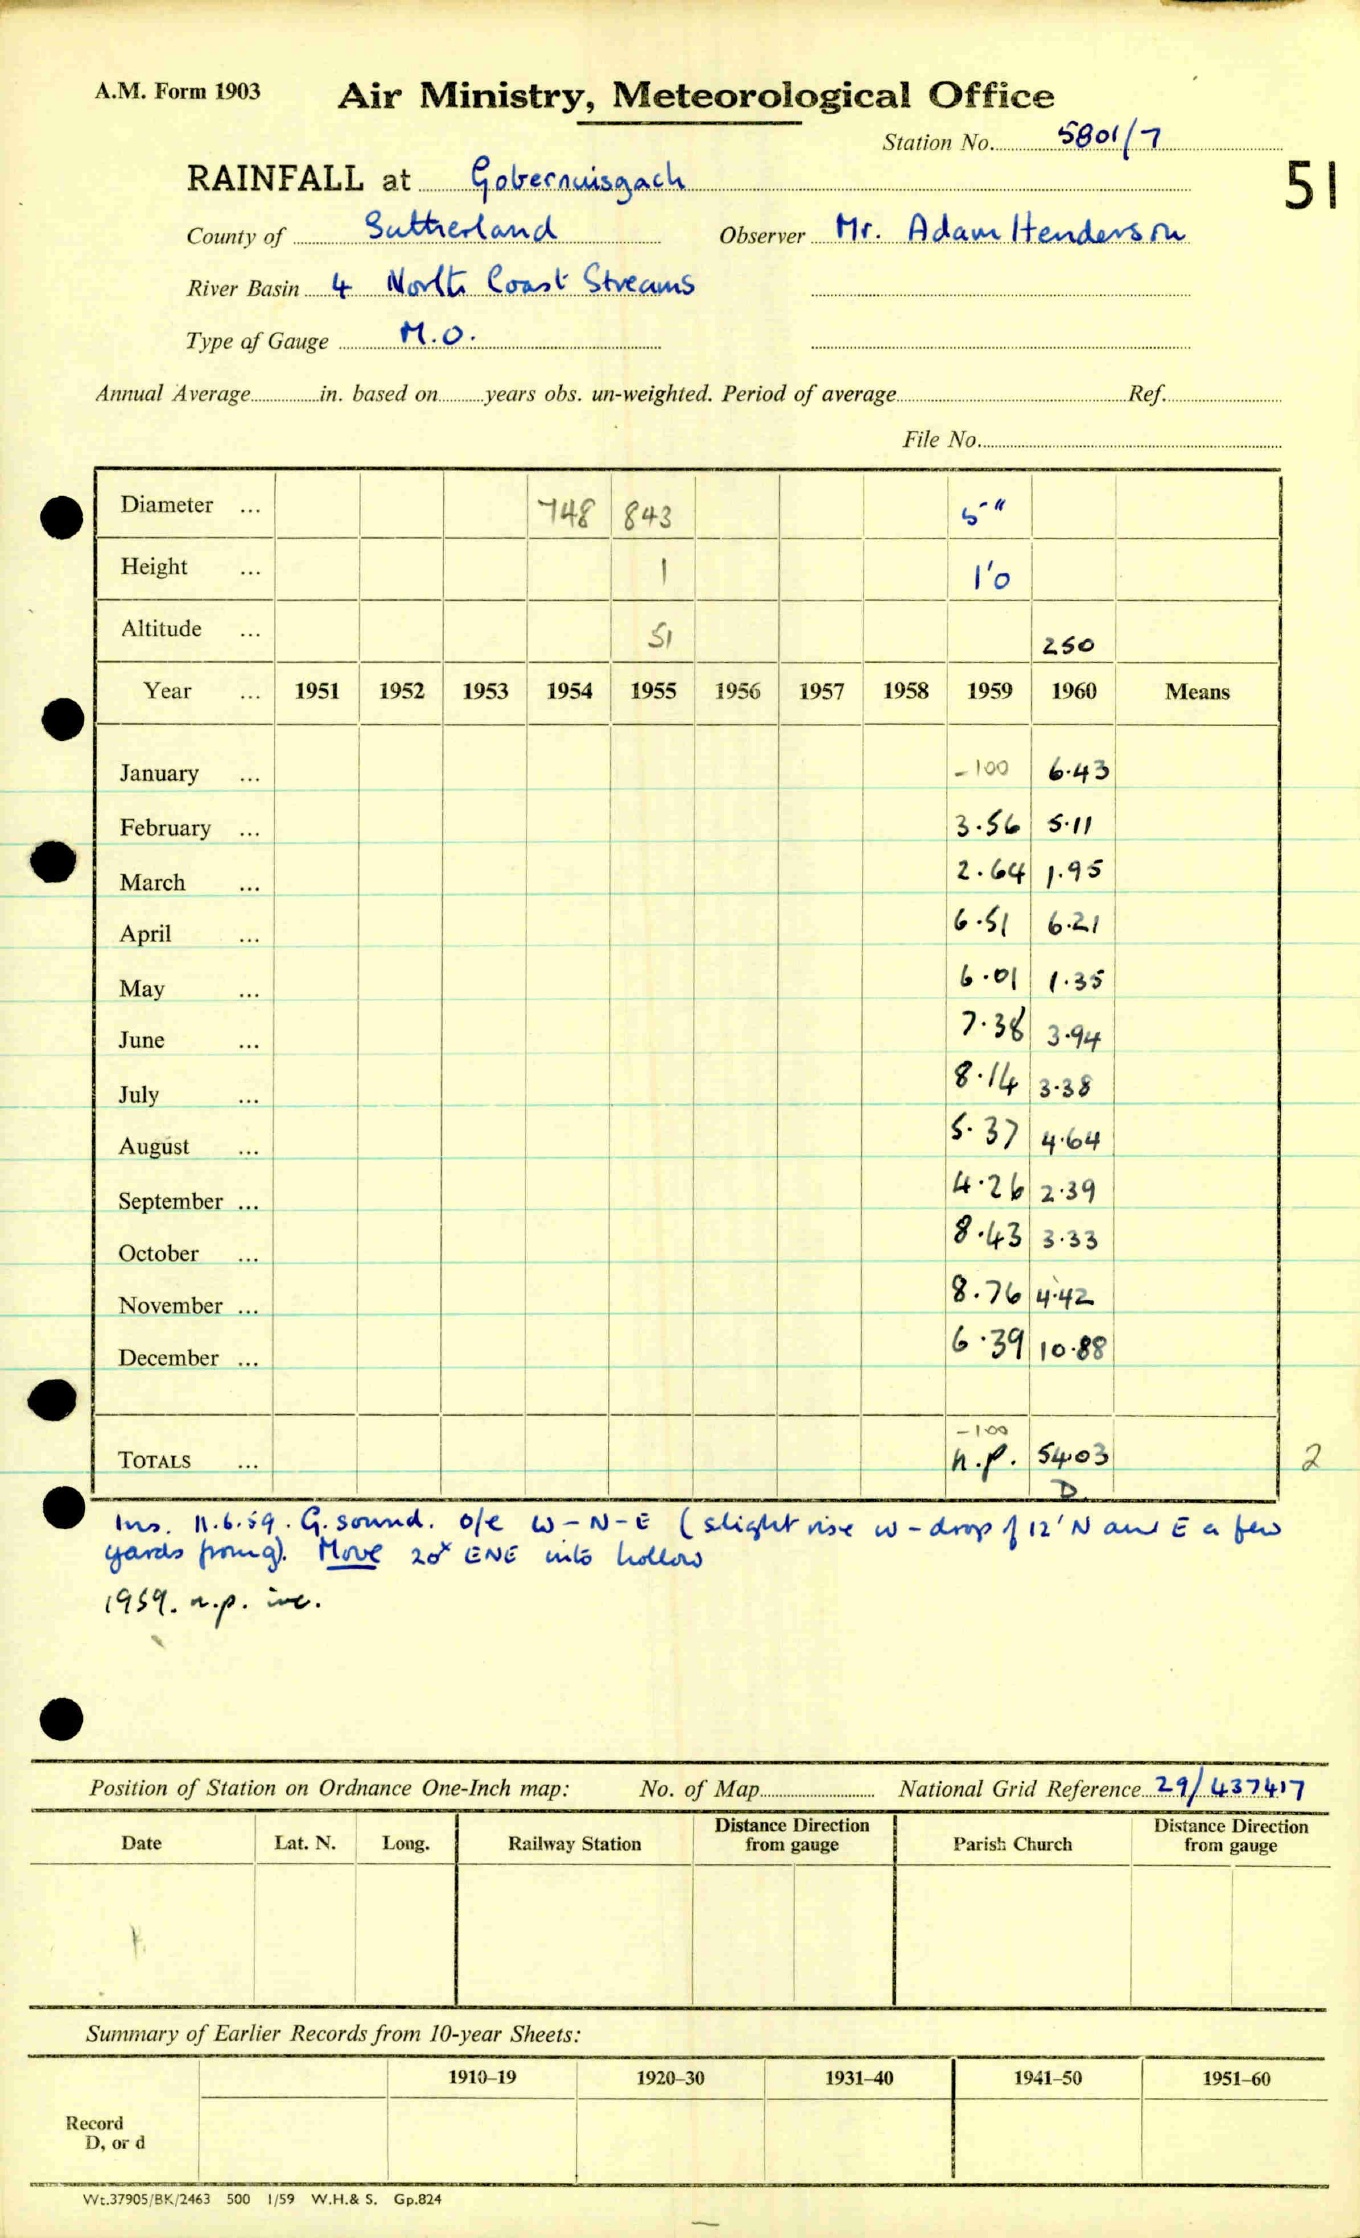 A.M. Form 1903 Air Ministry, Meteorological Office
Station No. 5801/7
RAINFALL at Gobernuisgach 51
County of Sutherland Observer Mr. Adam Henderson
River Basin 4 North Coast Streams
Type of Gauge M.O.
Annual Average in. based on years obs. un-weighted. Period of average Ref.
File No.
Diameter ... 748 843 5"
Height ... 1 1'0
Altitude ... 51 250
Year ... 1951 1952 1953 1954 1955 1956 1957 1958 1959 1960 Means
January ... -100 6.43
February ... 3.56 5.11
March ... 2.64 1.95
April ... 6.51 6.21
May ... 6.01 1.35
June ... 7.38 3.94
July ... 8.14 3.38
August ... 5.37 4.64
September ... 4.26 2.39
October ... 8.43 3.33
November ... 8.76 4.42
December ... 6.39 10.88
-100
TOTALS ... n.p. 54.03 2
D
Ins. 11.6.59. G. sound. o/e W-N-E (slight rise W - drop of 12' N and E a few
yards from g). Move 20x ENE into hollow
1959. n.p. inc.
Position of Station on Ordnance One-Inch map: No. of Map National Grid Reference 29/437417
Date Lat. N. Long. Railway Station Distance Direction from gauge Parish Church Distance Direction from gauge
Summary of Earlier Records from 10-year Sheets:
1910–19 1920–30 1931–40 1941–50 1951–60
Record
D, or d
Wt.37905/BK/2463 500 1/59 W.H.& S. Gp.824